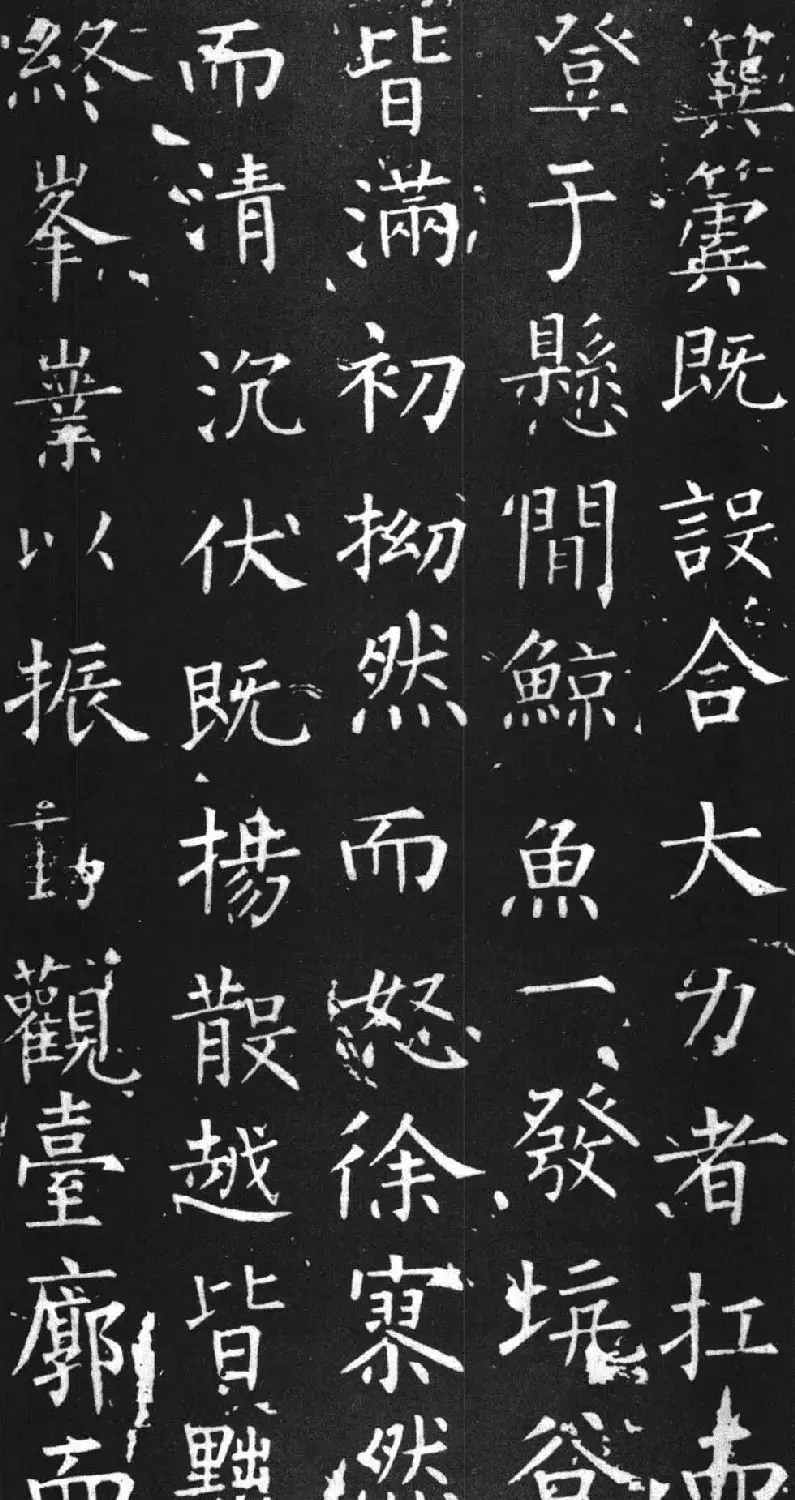 簨簴既設合大力者扛而
登于懸間鯨魚一發坑谷
皆滿初拗然而怒徐寥然
而清沉伏既揚散越皆黜
終峯業以振動觀臺廓而